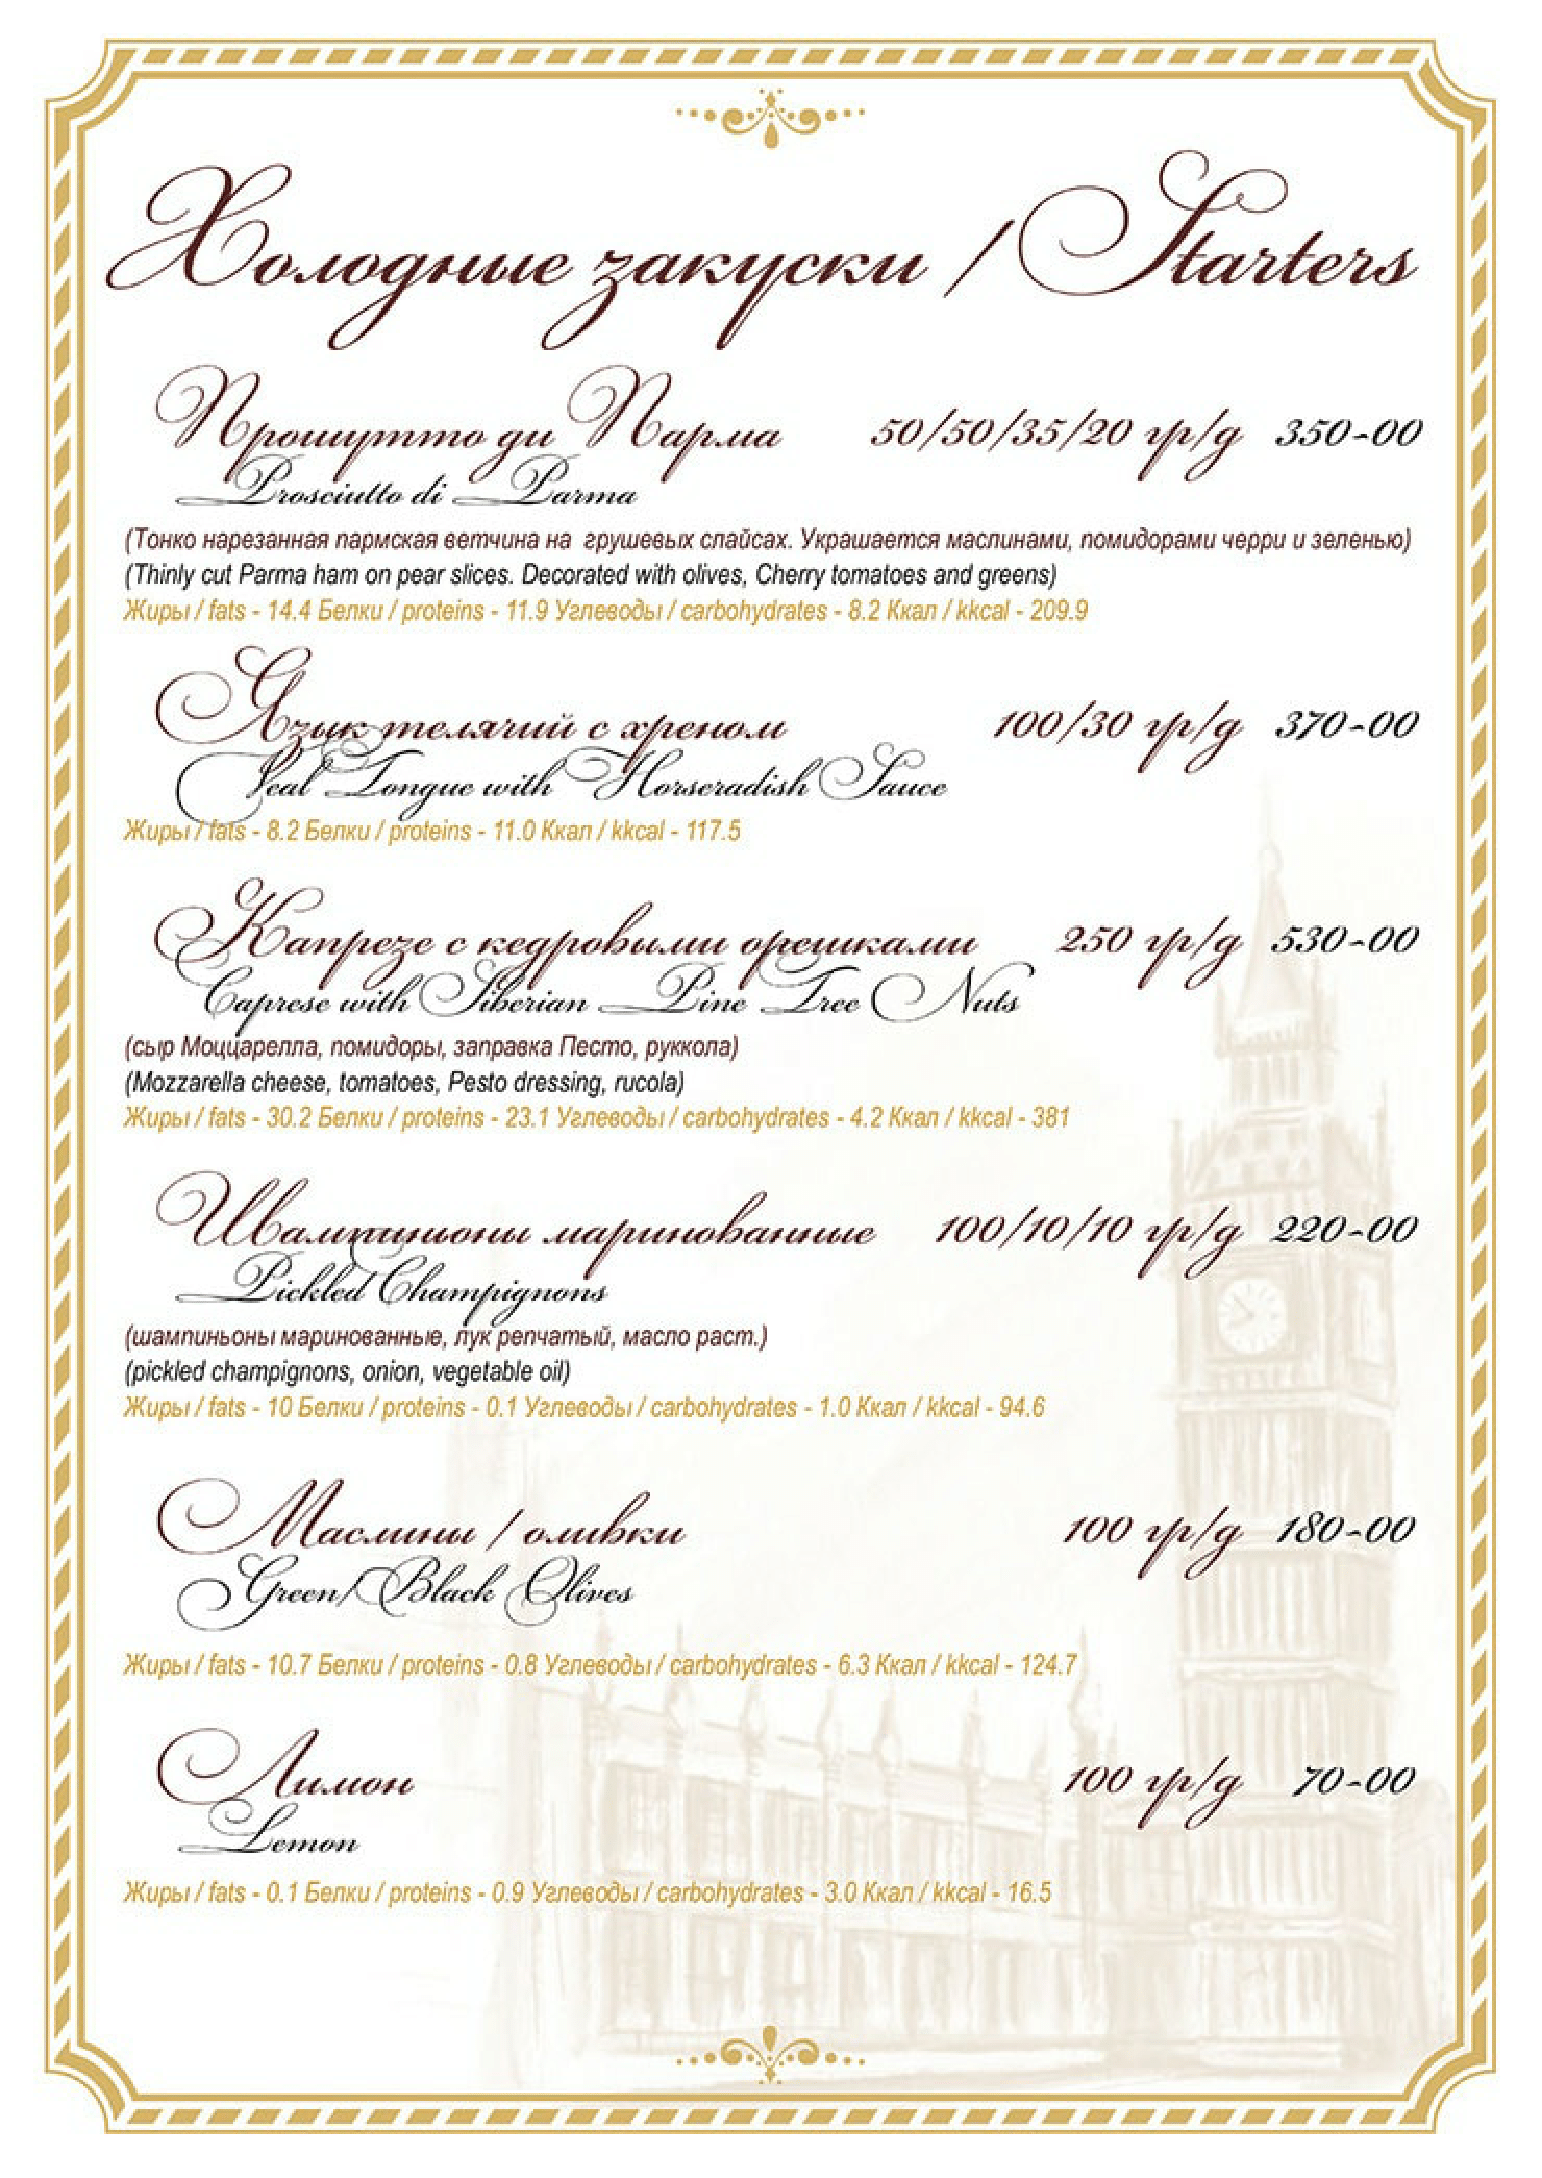 Холодные закуски / Starters
Прошутто ди Парма 50/50/35/20 гр/g 350-00
Prosciutto di Parma
(Тонко нарезанная пармская ветчина на грушевых слайсах. Украшается маслинами, помидорами черри и зеленью)
(Thinly cut Parma ham on pear slices. Decorated with olives, Cherry tomatoes and greens)
Жиры / fats - 14.4 Белки / proteins - 11.9 Углеводы / carbohydrates - 8.2 Ккал / kkcal - 209.9
Язик телячий с хреном 100/30 гр/g 370-00
Veal Tongue with Horseradish Sauce
Жиры / fats - 8.2 Белки / proteins - 11.0 Ккал / kkcal - 117.5
Капрезе с кедровыми орешками 250 гр/g 530-00
Caprese with Siberian Pine Tree Nuts
(сыр Моццарелла, помидоры, заправка Песто, руккола)
(Mozzarella cheese, tomatoes, Pesto dressing, rucola)
Жиры / fats - 30.2 Белки / proteins - 23.1 Углеводы / carbohydrates - 4.2 Ккал / kkcal - 381
Шампиньоны маринованные 100/10/10 гр/g 220-00
Pickled Champignons
(шампиньоны маринованные, лук репчатый, масло раст.)
(pickled champignons, onion, vegetable oil)
Жиры / fats - 10 Белки / proteins - 0.1 Углеводы / carbohydrates - 1.0 Ккал / kkcal - 94.6
Маслины / оливки 100 гр/g 180-00
Green/Black Olives
Жиры / fats - 10.7 Белки / proteins - 0.8 Углеводы / carbohydrates - 6.3 Ккал / kkcal - 124.7
Лимон 100 гр/g 70-00
Lemon
Жиры / fats - 0.1 Белки / proteins - 0.9 Углеводы / carbohydrates - 3.0 Ккал / kkcal - 16.5